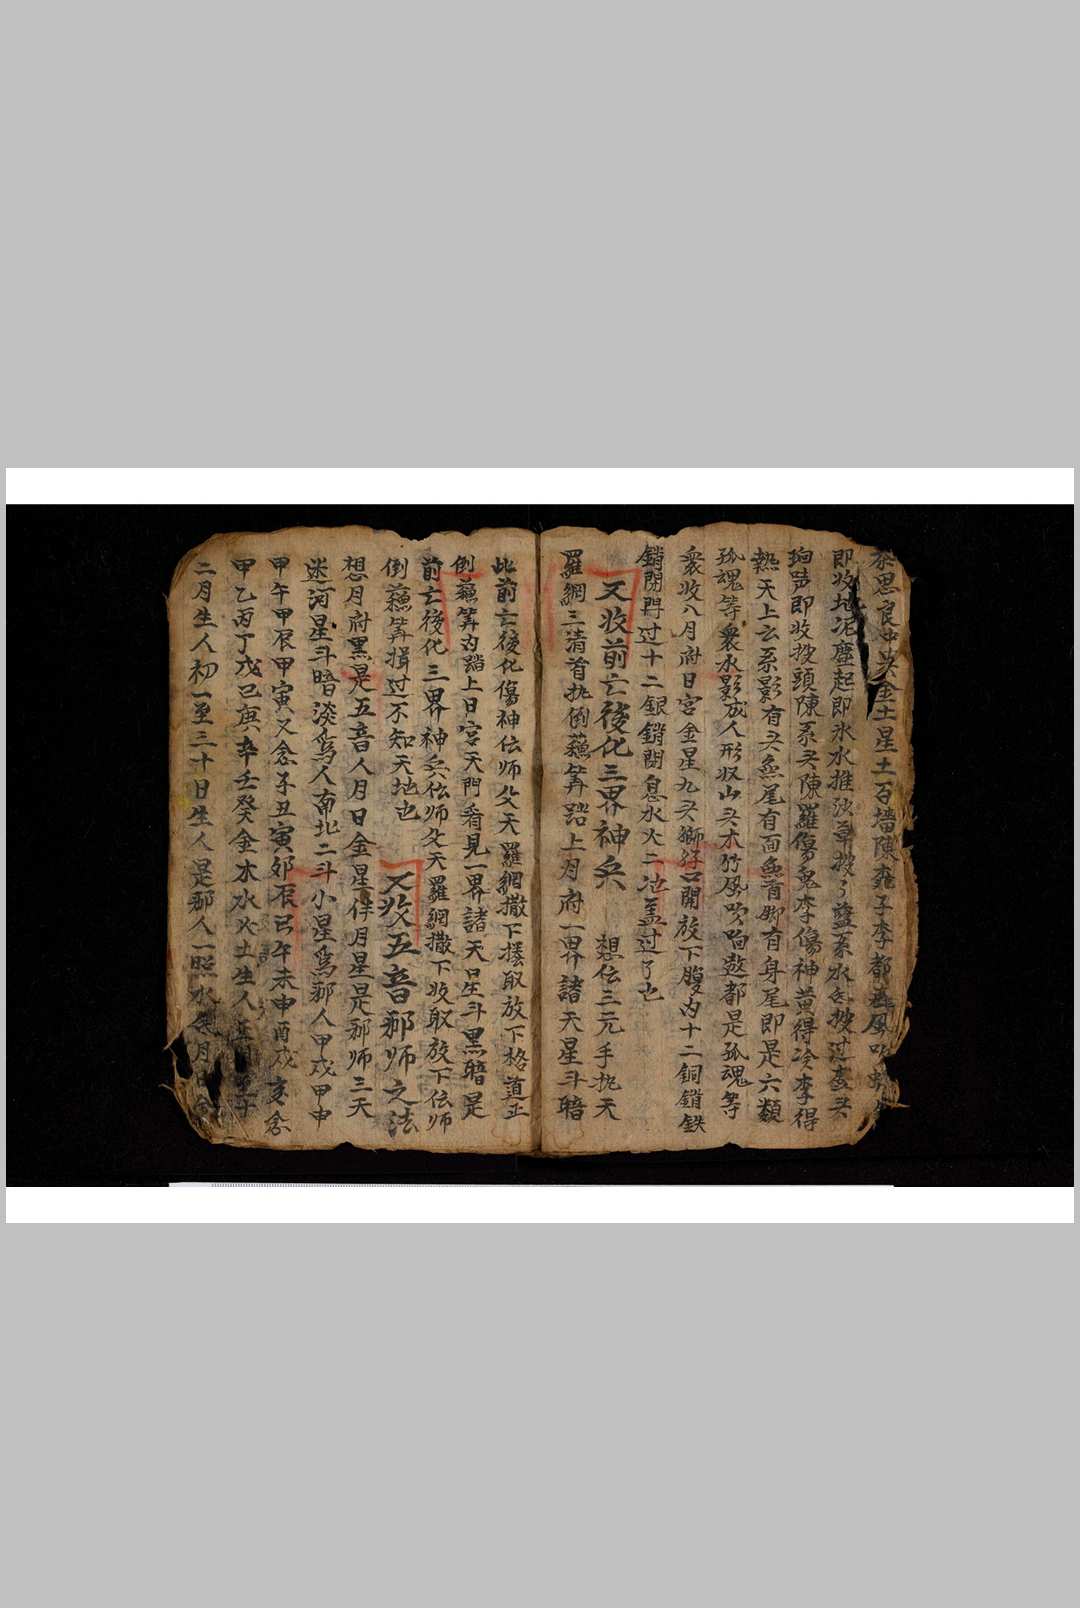 黎思良中英金土星土百墻陳 子李都 風吹
即收地泥塵起即氷水推波 草搜 水 搜过 头
即收搜頭陳系头陳羅傷鬼李傷神黄得冷李得
熱天上云系影有头無尾有面無首脚有身尾即是六類
孤魂等衆水影成人形収山头木竹風吹 遊都是孤魂等
衆收八月府日宫金星九头獅仔口開放下腹内十二銅銷鉄
銷閉門过十二銀銷閉息水火二池盖过了也
又收前亡後化三界神兵 想伝三元手执天
羅網三清首执倒蘓筭踏上月府一界諸天星斗暗
此前亡後化傷神伝师父天羅網撒下 取放下格道正
倒蘓筭 踏上日宫天門看見一界諸天星斗黑暗是
前亡後化三界神兵伝师父天羅網撒下收取放下伝师
倒蘓筭揖过不知天地也 又收五音邪师之法
想月府黑是五音人月日金星伴月星是邪师三天
迷河星斗暗淡爲人南北二斗小星爲邪人甲戌甲申
甲午甲辰甲寅又念子丑寅夘辰巳午未申酉戌亥念
甲乙丙丁戊己庚辛壬癸金木水火土生人正月
二月生人初一至三十日生人是邪人一照水 月